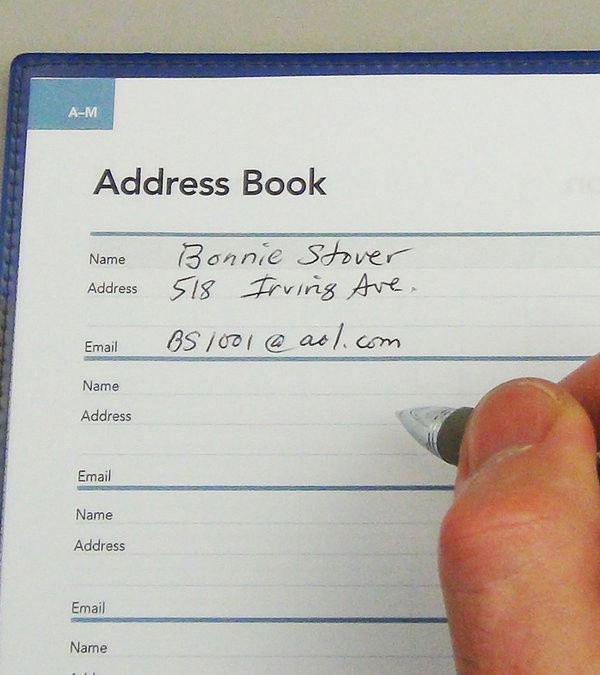 A–M
Address Book
Name Bonnie Stover
Address 518 Irving Ave.
Email BS1001@aol.com
Name
Address
Email
Name
Address
Email
Name